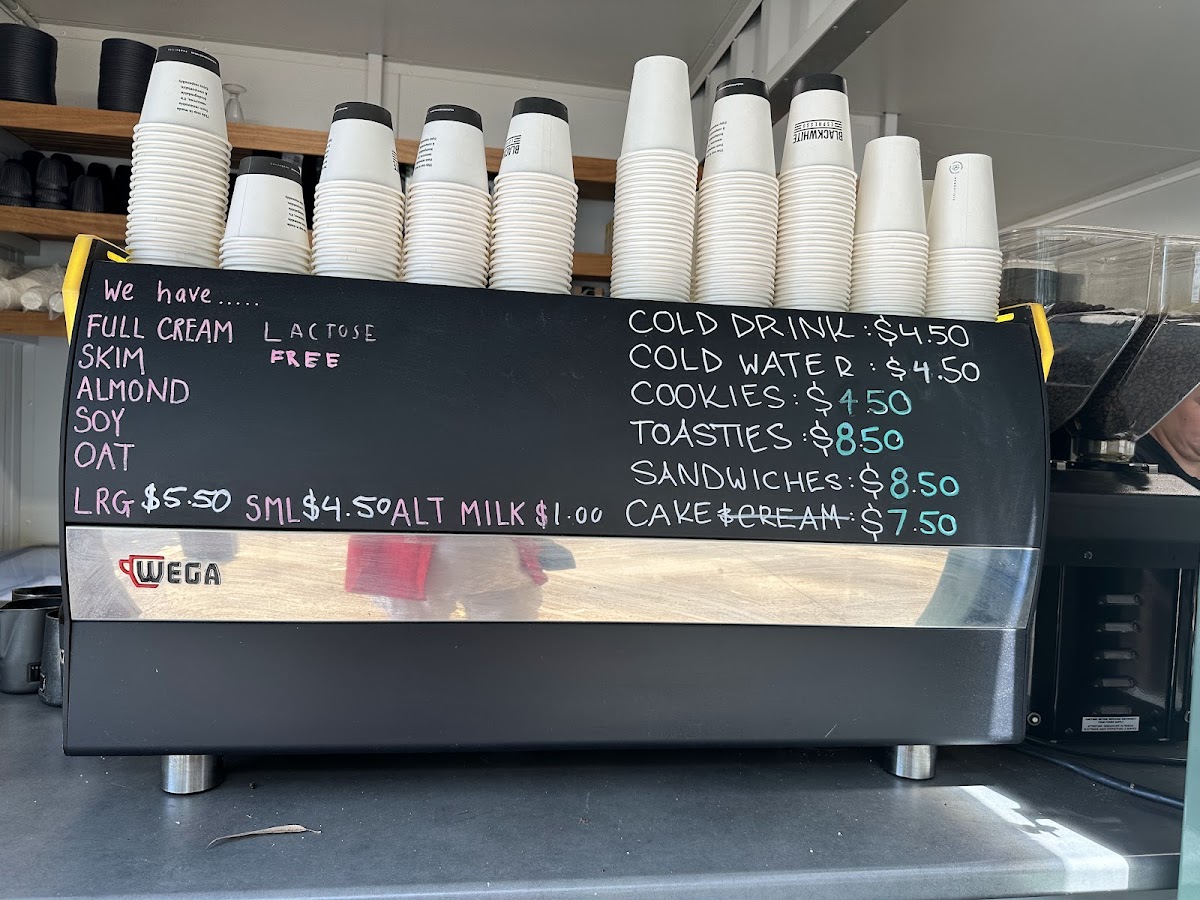 BLACKWHITE
ESPRESSO
We have.....
FULL CREAM LACTOSE
SKIM FREE
ALMOND
SOY
OAT
LRG $5.50 SML $4.50 ALT MILK $1.00
COLD DRINK : $4.50
COLD WATER : $4.50
COOKIES: $4.50
TOASTIES : $8.50
SANDWICHES: $8.50
CAKE $CREAM : $7.50
WEGA